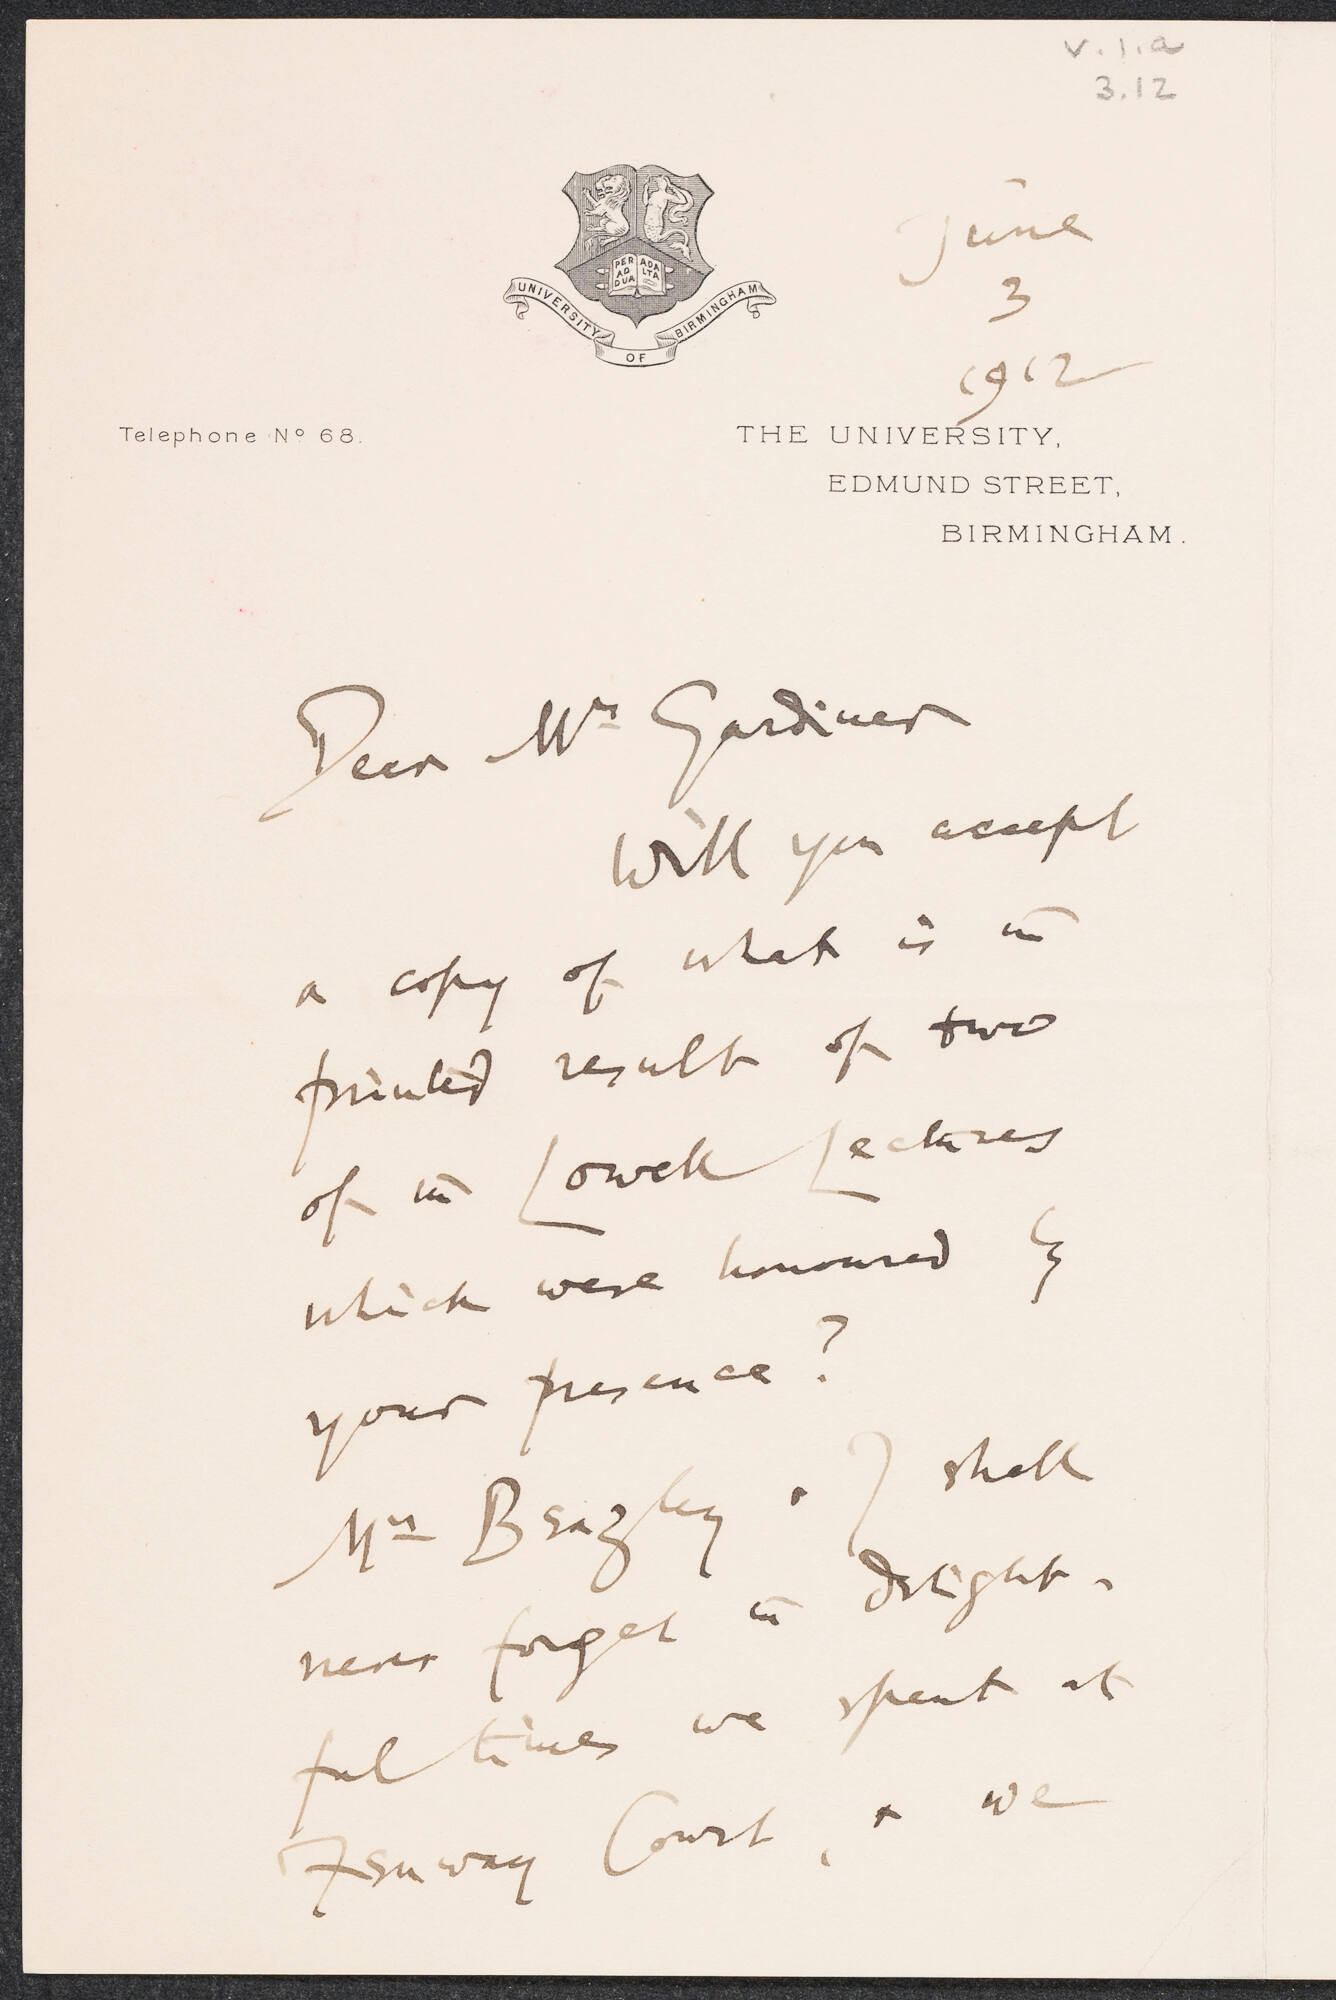 v.1.a
3.12
PER ADA
AD LTA
DUA
UNIVERSITY OF BIRMINGHAM
June
3
1912
Telephone Nº 68.
THE UNIVERSITY,
EDMUND STREET,
BIRMINGHAM.
Dear Mrs Gardiner
Will you accept
a copy of what is in
printed result of two
of my Lowell Lectures
which were honoured by
your presence?
Mrs Beazley & I shall
never forget the delight-
ful times we spent at
Fenway Court, & we